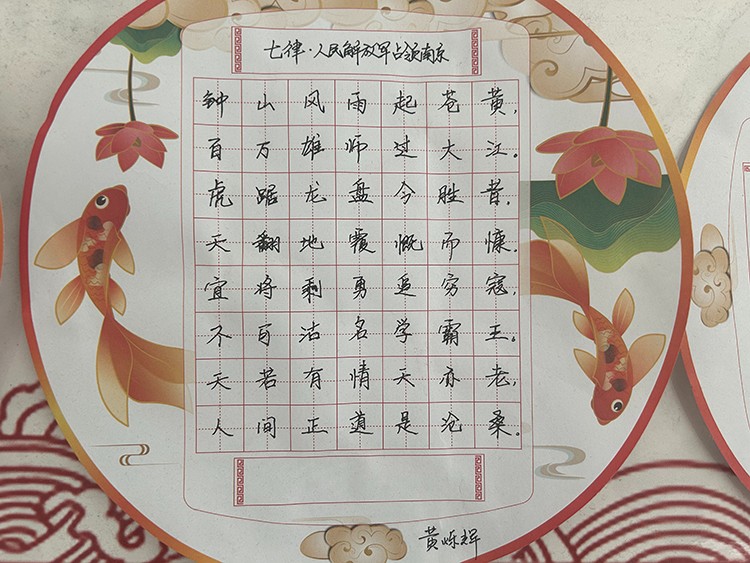 七律·人民解放军占领南京
钟山风雨起苍黄，
百万雄师过大江。
虎踞龙盘今胜昔，
天翻地覆慨而慷。
宜将剩勇追穷寇，
不百沽名学霸王。
天若有情天亦老，
人间正道是沧桑。
黄烁辉